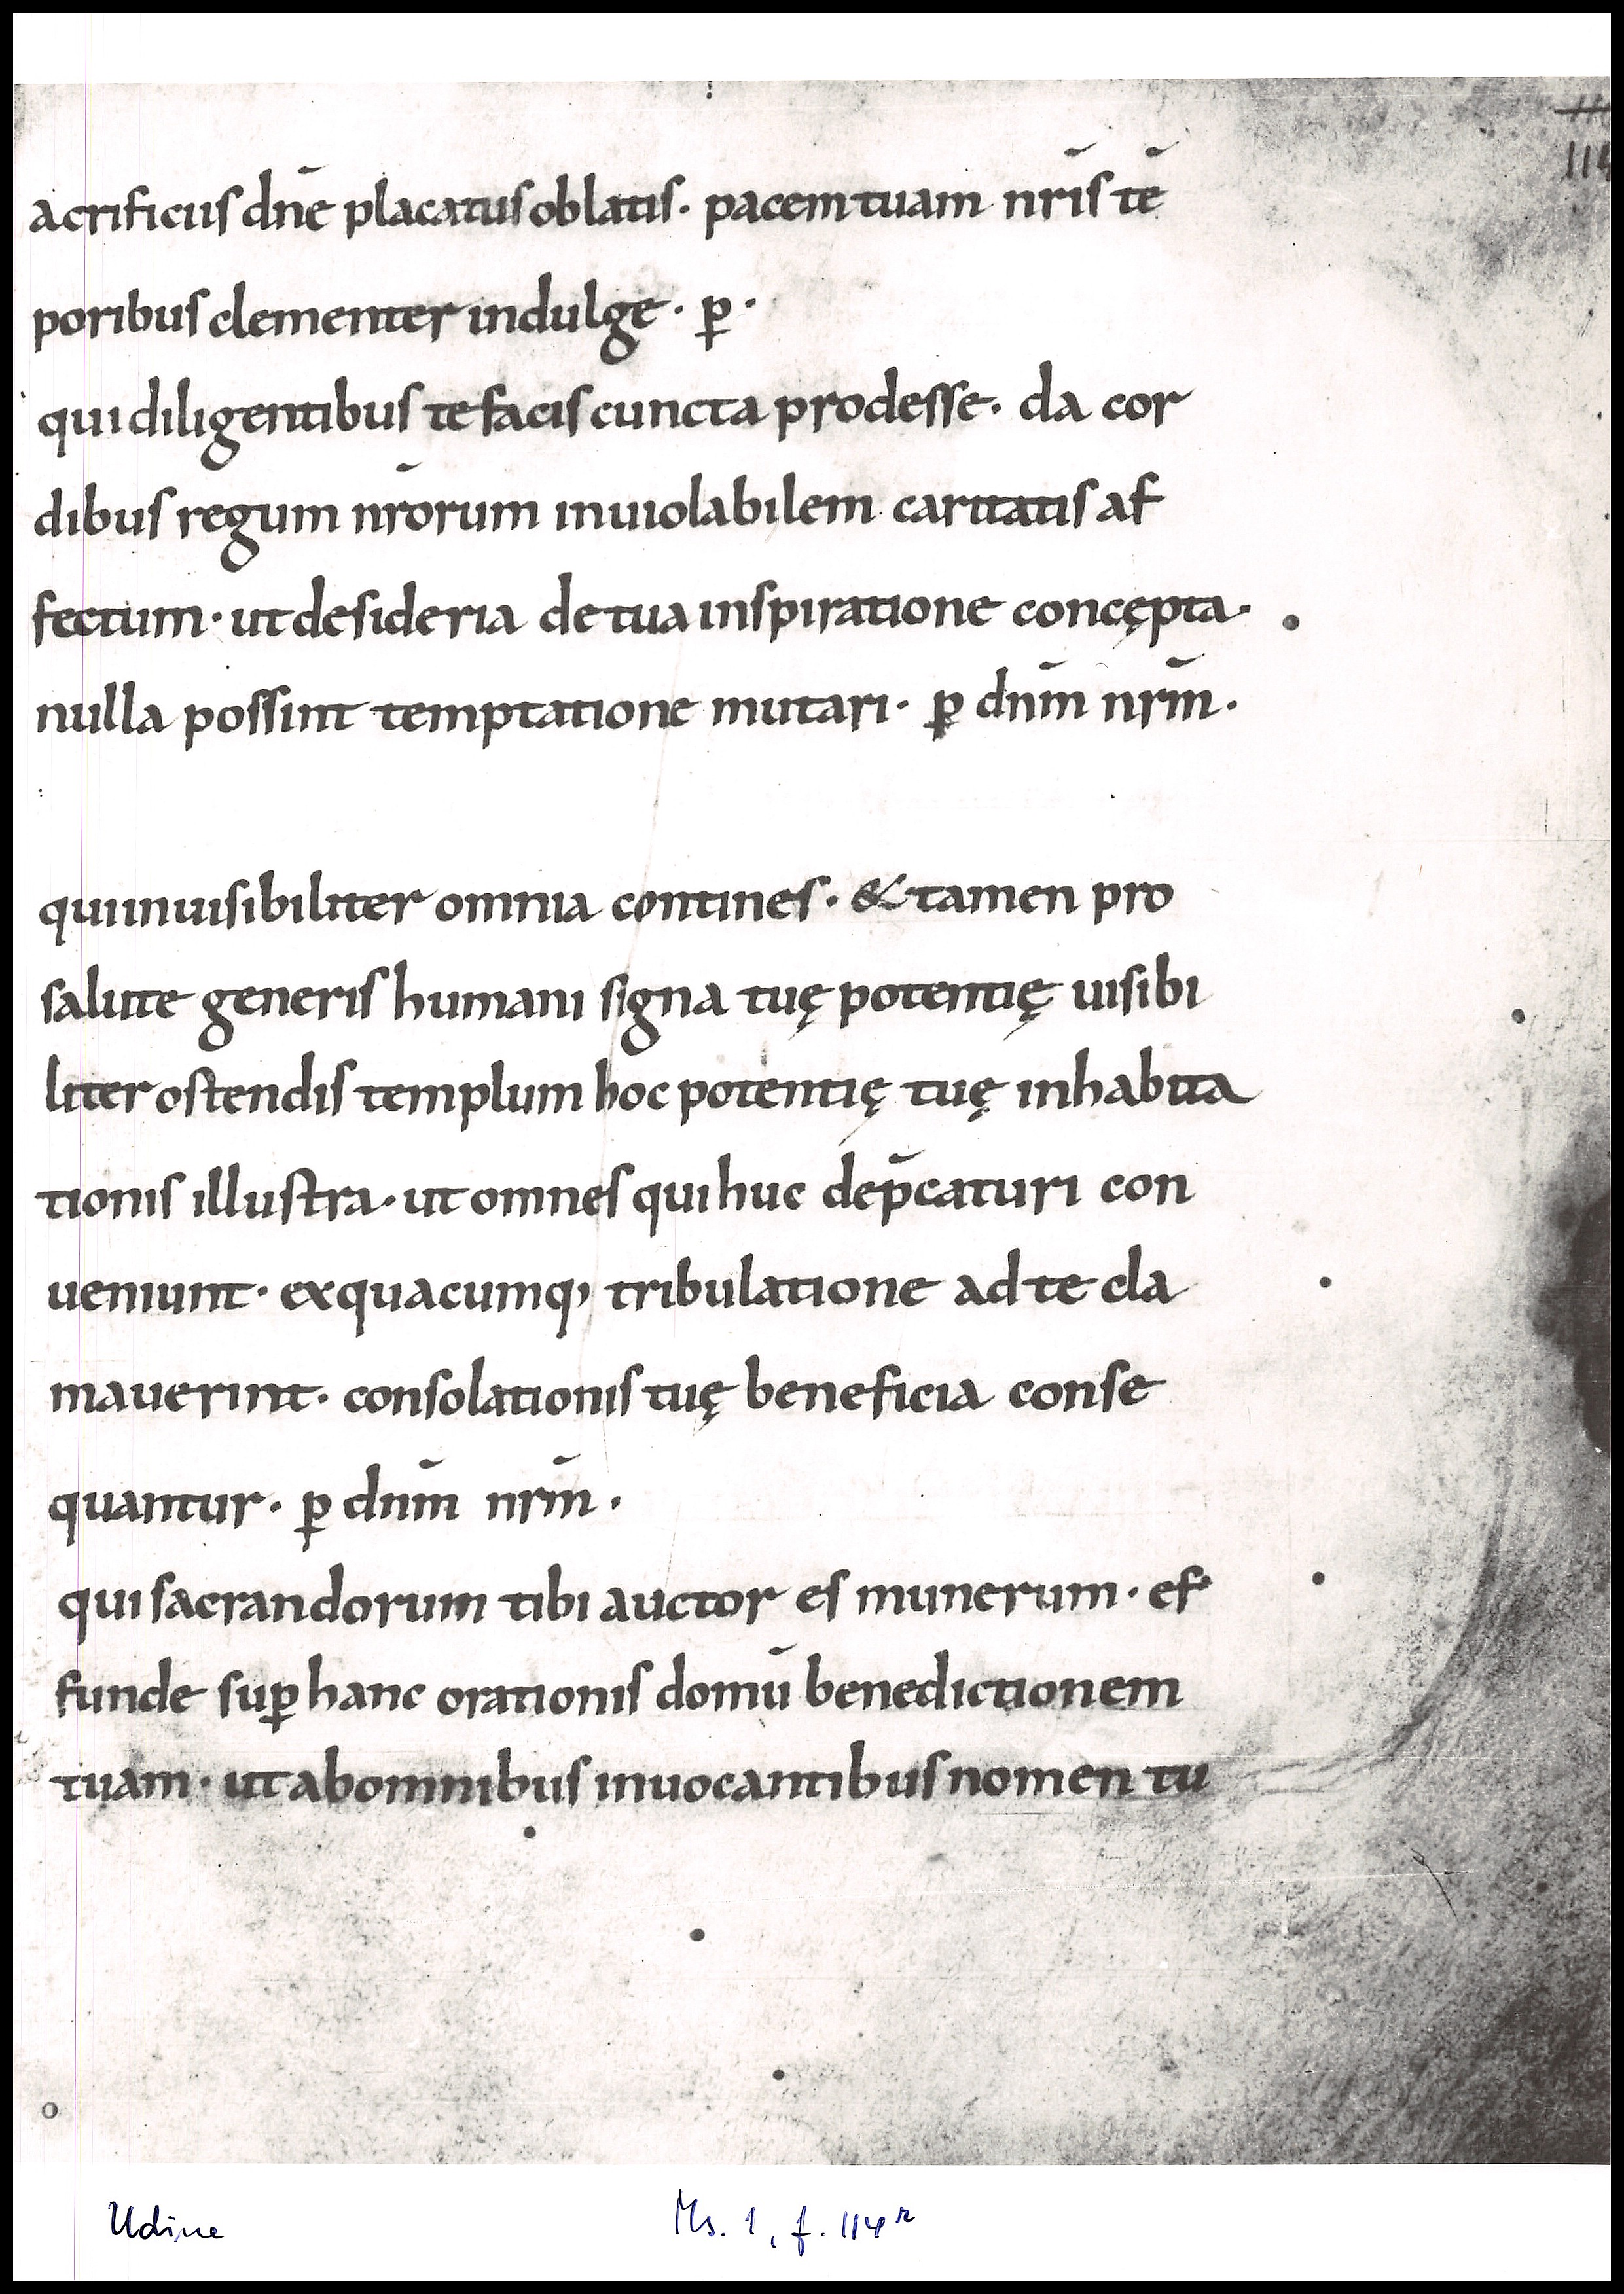 114
acrificiis dn̄e placatus oblatis· pacem tuam nr̄is tē
poribus clementer indulge· ꝑ·
qui diligentibus te facis cuncta prodesse· da cor
dibus regum nr̄orum inuiolabilem caritatis af
fectum· ut desideria de tua inspiratione concępta·
nulla possint temptatione mutari· ꝑ dnm̄ nrm̄·
qui inuisibiliter omnia contines· & tamen pro
salute generis humani signa tuę potentię uisibi
liter ostendis templum hoc potentię tuę inhabita
tionis illustra· ut omnes qui huc dep̄caturi con
ueniunt· ex quacumq; tribulatione ad te cla
mauerint· consolationis tuę beneficia conse
quantur· ꝑ dnm̄ nrm̄·
qui sacrandorum tibi auctor es munerum· ef
funde suꝑ hanc orationis domū benedictionem
tuam· ut ab omnibus inuocantibus nomen tu
Udine Ms. 1, f. 114r